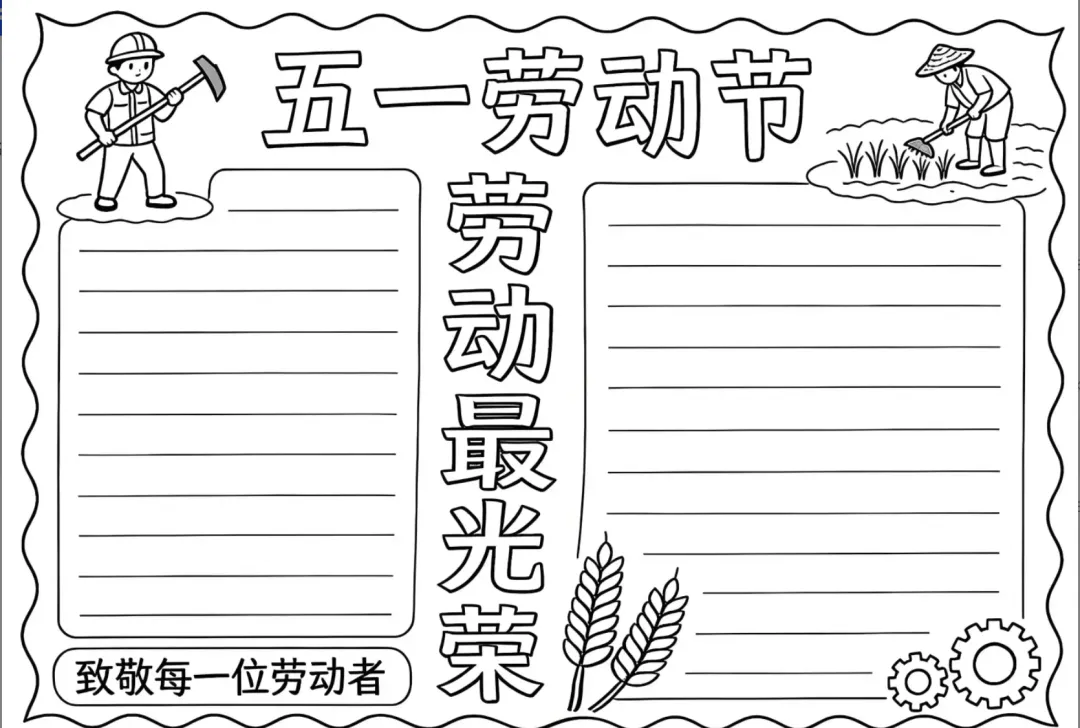 五一劳动节
劳动最光荣
致敬每一位劳动者